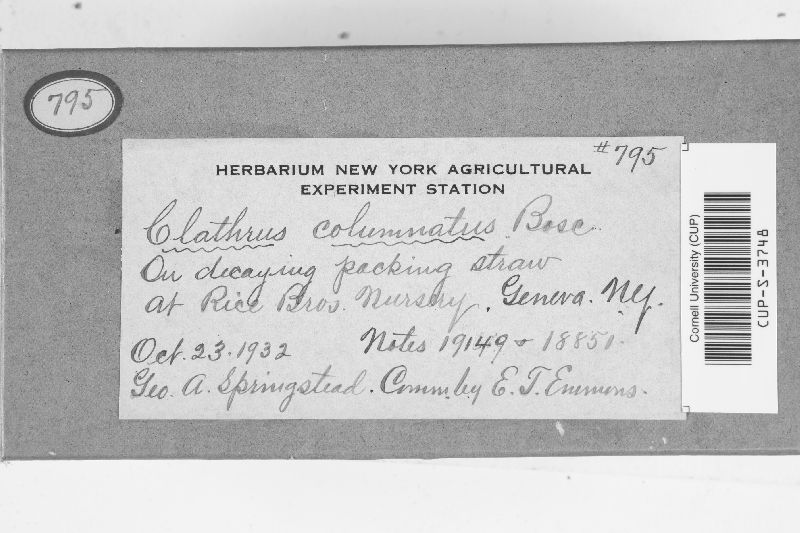 795
#795
HERBARIUM NEW YORK AGRICULTURAL
EXPERIMENT STATION
Clathrus columnatus Bosc.
On decaying packing straw
at Rice Bros. Nursery. Geneva. N.Y.
Oct. 23. 1932 Notes 19149 & 18851.
Geo. A. Springstead. Comm. by E. T. Emmons.
Cornell University (CUP)
CUP-S-3748